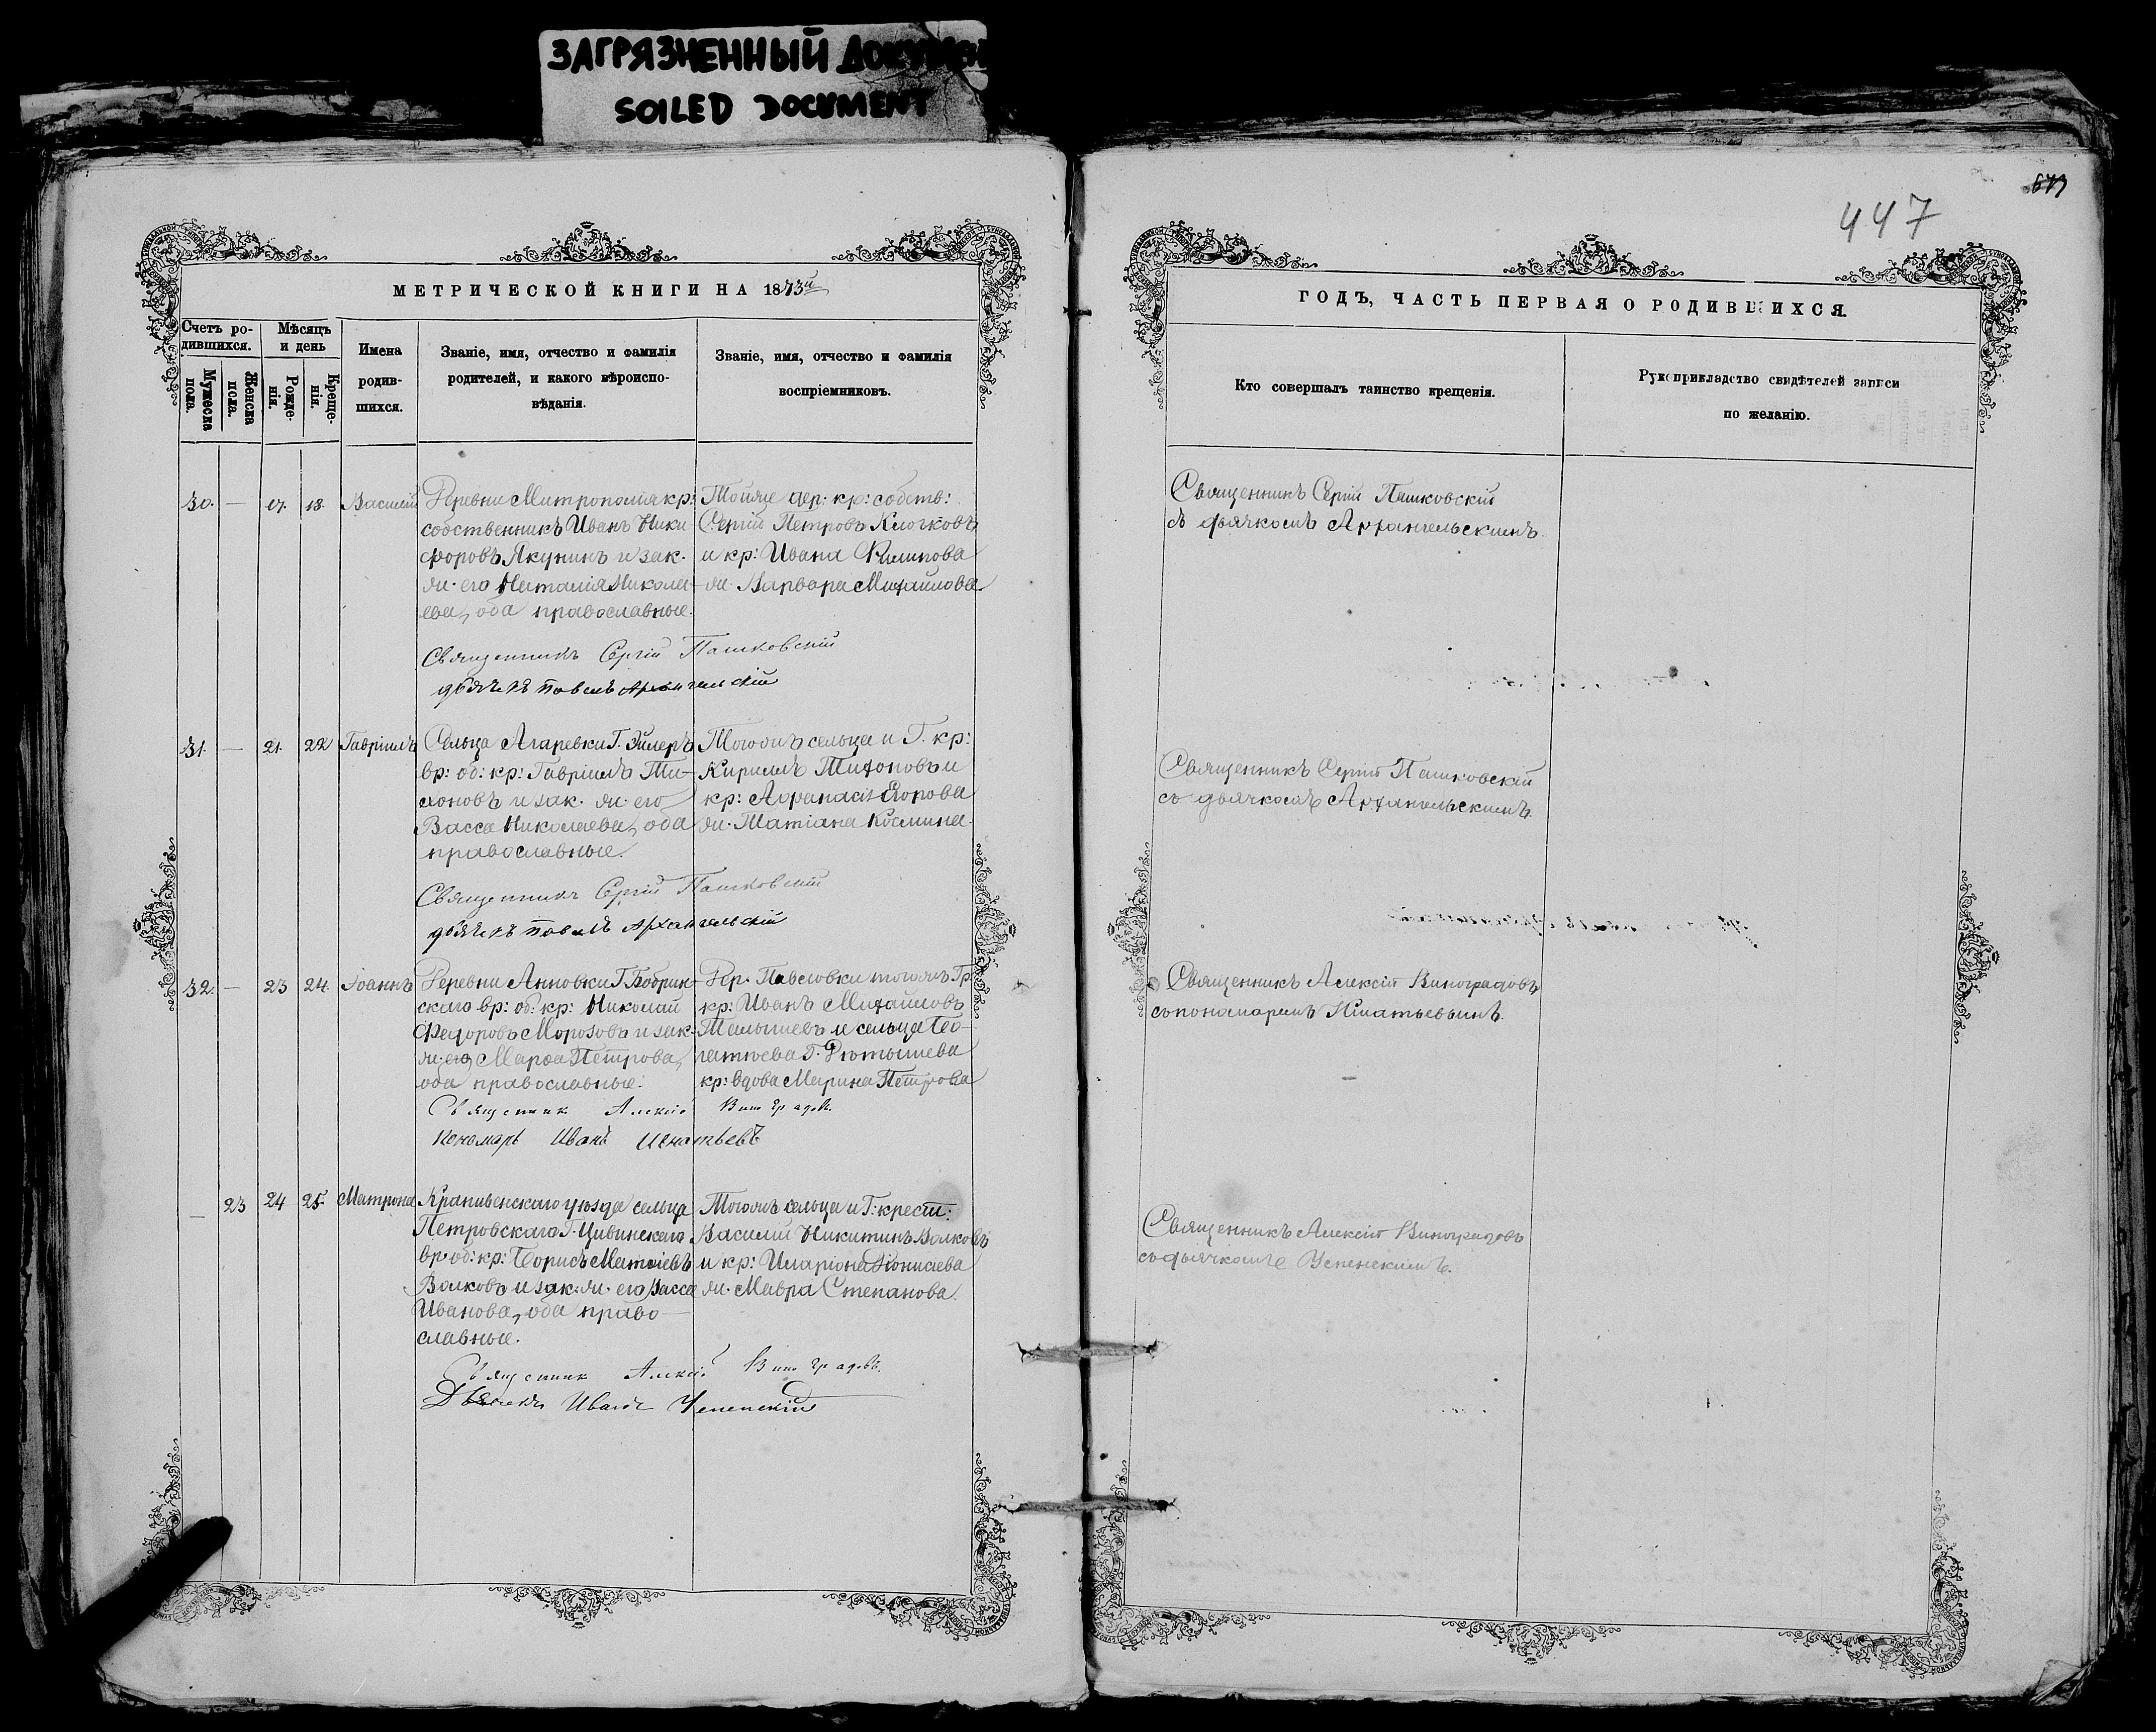 ЗАГРЯЗНЕННЫЙ ДОКУМЕН
SOILED DOCUMENT
447
МЕТРИЧЕСКОЙ КНИГИ НА 1873й
Счетъ ро-
дившихся.
Мужеска
пола.
Женска
пола.
Мѣсяцъ
и день
Рожде-
нія.
Креще-
нія.
Имена
родив-
шихся.
Званіе, имя, отчество и фамилія
родителей, и какого вѣроиспо-
вѣданія.
Званіе, имя, отчество и фамилія
воспріемниковъ.
30. — 17. 18. Василій
Деревни Митрополія кр:
собственникъ Иванъ Ники
форовъ Якунинъ и зак.
ж. его Наталія Никола-
ева, оба православные.
Тойже дер: кр: собств:
Сергій Петровъ Клочковъ
и кр: Ивана Филипова
ж. Варвара Михайлова
Священникъ Сергій Пашковскій
дьячекъ Павелъ Архангельскій
31. — 21. 22 Гавріилъ
Сельца Агаревки Г. Эйлеръ
вр: об: кр: Гавріилъ Ти-
хоновъ и зак. ж. его
Васса Николаева, оба
православные.
Тогожъ сельца и Г. кр:
Кириллъ Тихоновъ и
кр: Афанасія Егорова
ж. Татіана Космина.
Священникъ Сергій Пашковскій
дьячекъ Павелъ Архангельскій
32. — 23 24. Іоаннъ
Деревни Анновки Г. Бобрин-
скаго вр: об: кр: Николай
Федоровъ Морозовъ и зак.
ж. его Марѳа Петрова,
оба православные.
Дер. Павловки тогожъ Гр.
кр: Иванъ Михайловъ
Малышевъ и сельца
Г. Ртищева
кр: вдова Марина Петрова
Священник Алексій Виноградовъ
Пономарь Иванъ Игнатьевъ
— 23 24 25. Матрона
Крапивенскаго уѣзда сельца
Петровскаго Г. Цивинскаго
вр: об: кр: Борисъ Матвіевъ
Волковъ и зак. ж. его Васса
Иванова, оба право-
славные.
Тогожъ сельца и Г: крест:
Василій Никитинъ Волковъ
и кр: Иларіона Діонисіева
ж. Мавра Степанова.
Священник Алексій Виноградовъ
Дьячекъ Иванъ Успенскій
ГОДЪ, ЧАСТЬ ПЕРВАЯ О РОДИВШИХСЯ.
Кто совершалъ таинство крещенія.
Рукоприкладство свидѣтелей записи
по желанію.
Священникъ Сергій Пашковскій
съ дьячкомъ Архангельскимъ.
Священникъ Сергій Пашковскій
съ дьячкомъ Архангельскимъ.
Священникъ Алексій Виноградовъ
съ пономаремъ Игнатьевымъ.
Священникъ Алексій Виноградовъ
съ дьячкомъ Успенскимъ.